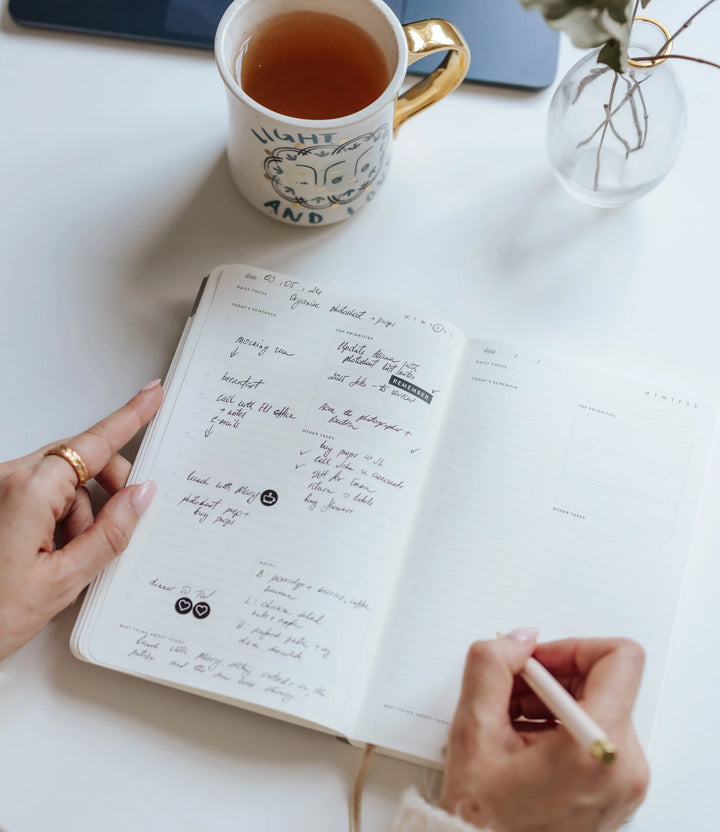 LIGHT
AND LOVE
date 03 / 05 / 24
DAILY FOCUS
Organise photoshoot + props
M T W T F S S
TODAY'S SCHEDULE
morning run
breakfast
call with EU office
+ notes
e-mails
lunch with Mary
photoshoot prep +
buy props
dinner @ TW
TOP PRIORITIES
Update with
photoshoot
2025 to review
REMEMBER
the photographer +
location
OTHER TASKS
buy props
call John re
gift for Emma
return → labels
buy flowers
NOTES
B: porridge + berries, coffee
banana
L: chicken salad
nuts + apple
D: pasta + veg
dark chocolate
BEST THING ABOUT TODAY
lunch with Mary, sitting outside on the
patio and the sun was shining
date / /
DAILY FOCUS
M T W T F S S
TODAY'S SCHEDULE
TOP PRIORITIES
OTHER TASKS
BEST THING ABOUT TODAY